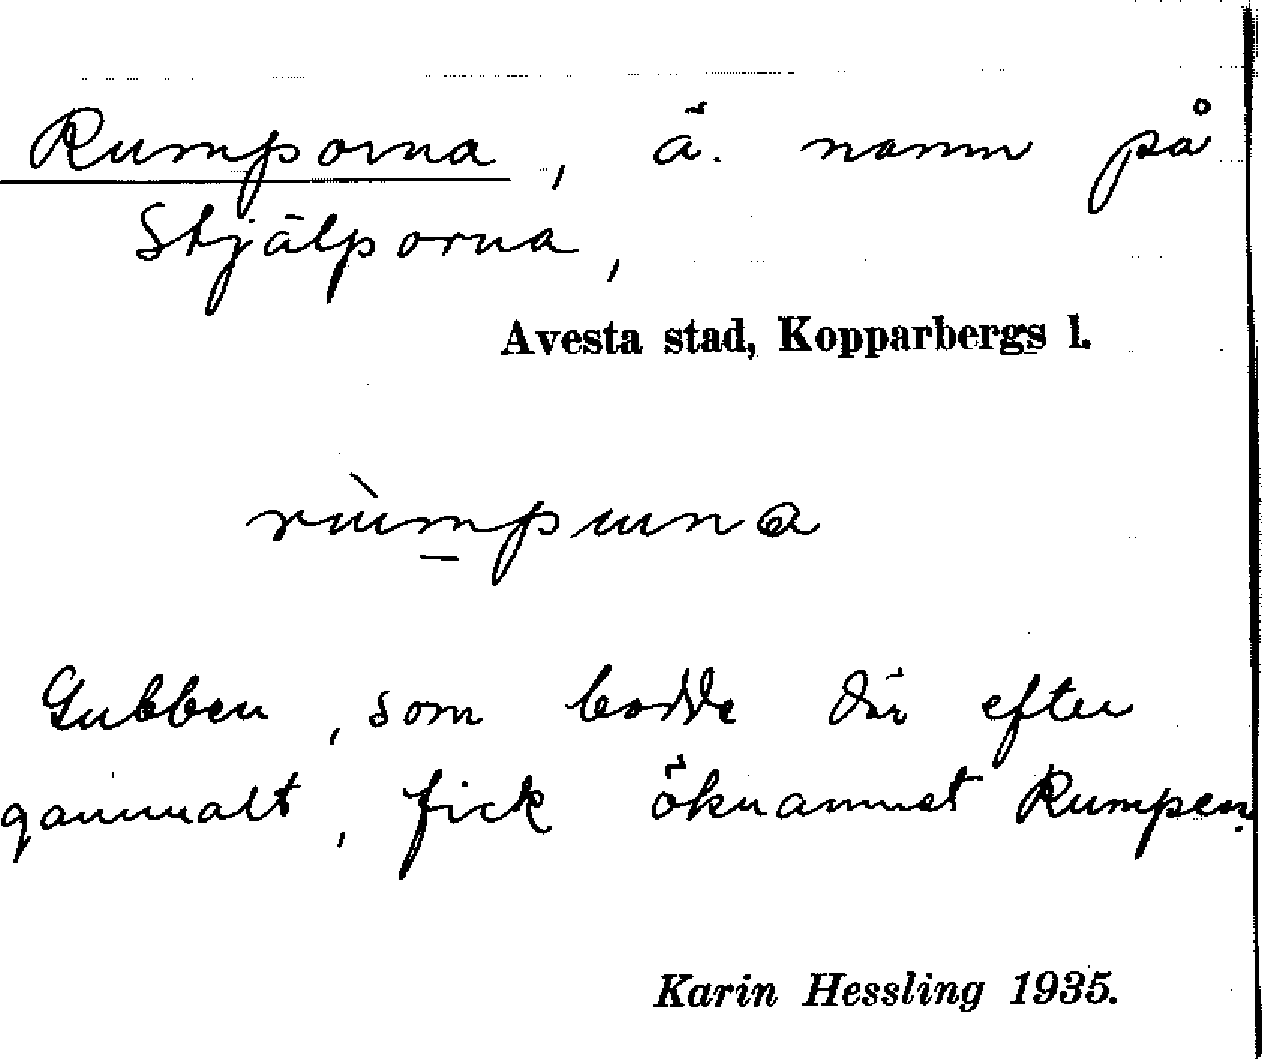 Rumporna, ä. namn på
Stjälporna,
Avesta stad, Kopparbergs l.
rùmpuna
Gubben, som bodde där efter
gammalt, fick öknamnet Rumpen.
Karin Hessling 1935.